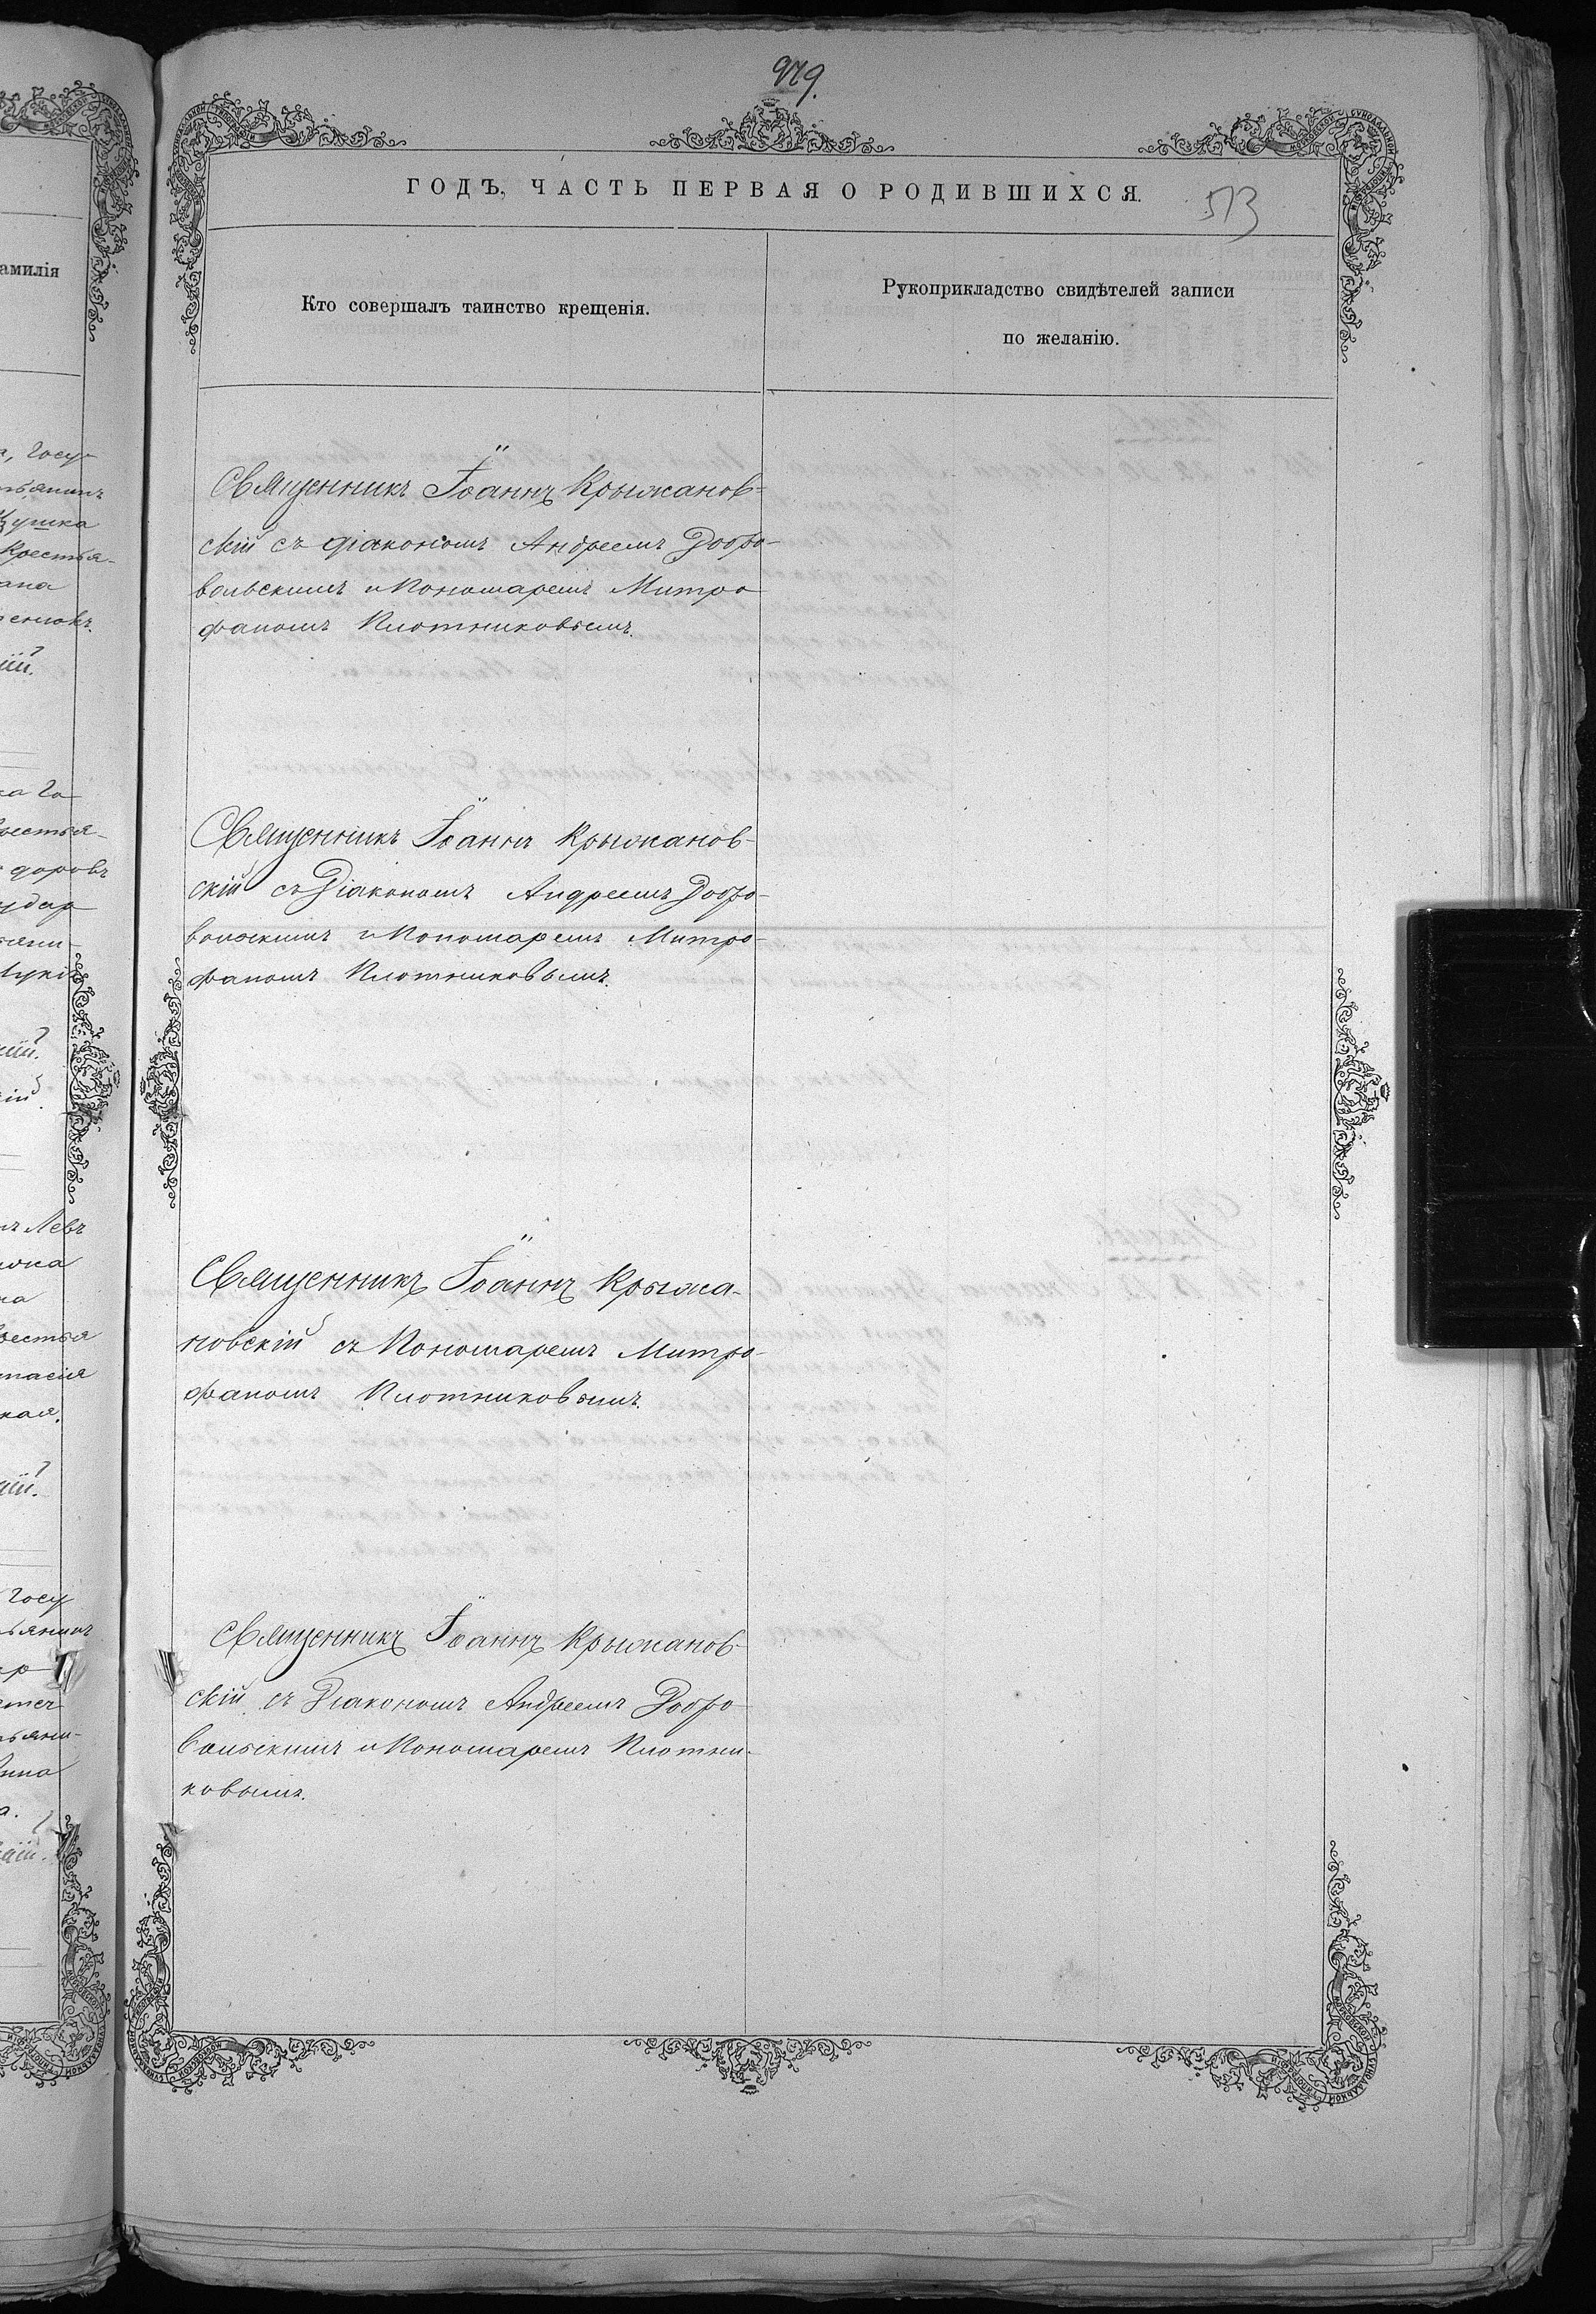 979.
ГОДЪ, ЧАСТЬ ПЕРВАЯ О РОДИВШИХСЯ.
513
амилія
Кто совершалъ таинство крещенія.
Рукоприкладство свидѣтелей записи
по желанію.
Священникъ Іоаннъ Крыжанов-
скій съ діакономъ Андреемъ Добро-
вольскимъ и Пономаремъ Митро
фаномъ Плотниковымъ.
Священникъ Іоаннъ Крыжанов-
скій съ Діакономъ Андреемъ Добро-
вольскимъ и Пономаремъ Митро-
фаномъ Плотниковымъ.
Священникъ Іоаннъ Крыжа-
новскій съ Пономаремъ Митро-
фаномъ Плотниковымъ.
Священникъ Іоаннъ Крыжанов-
скій съ Діакономъ Андреемъ Добро
вольскимъ и Пономаремъ Плотни-
ковымъ.